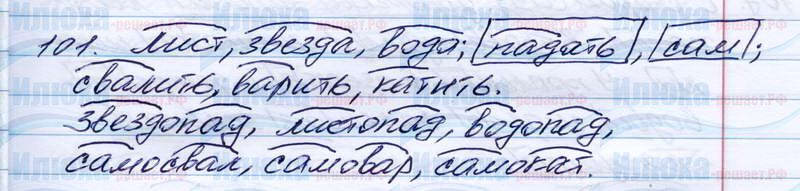 101. лист, звезда, вода; падать, сам;
свалить, варить, катить.
Звездопад, листопад, водопад,
самосвал, самовар, самокат.